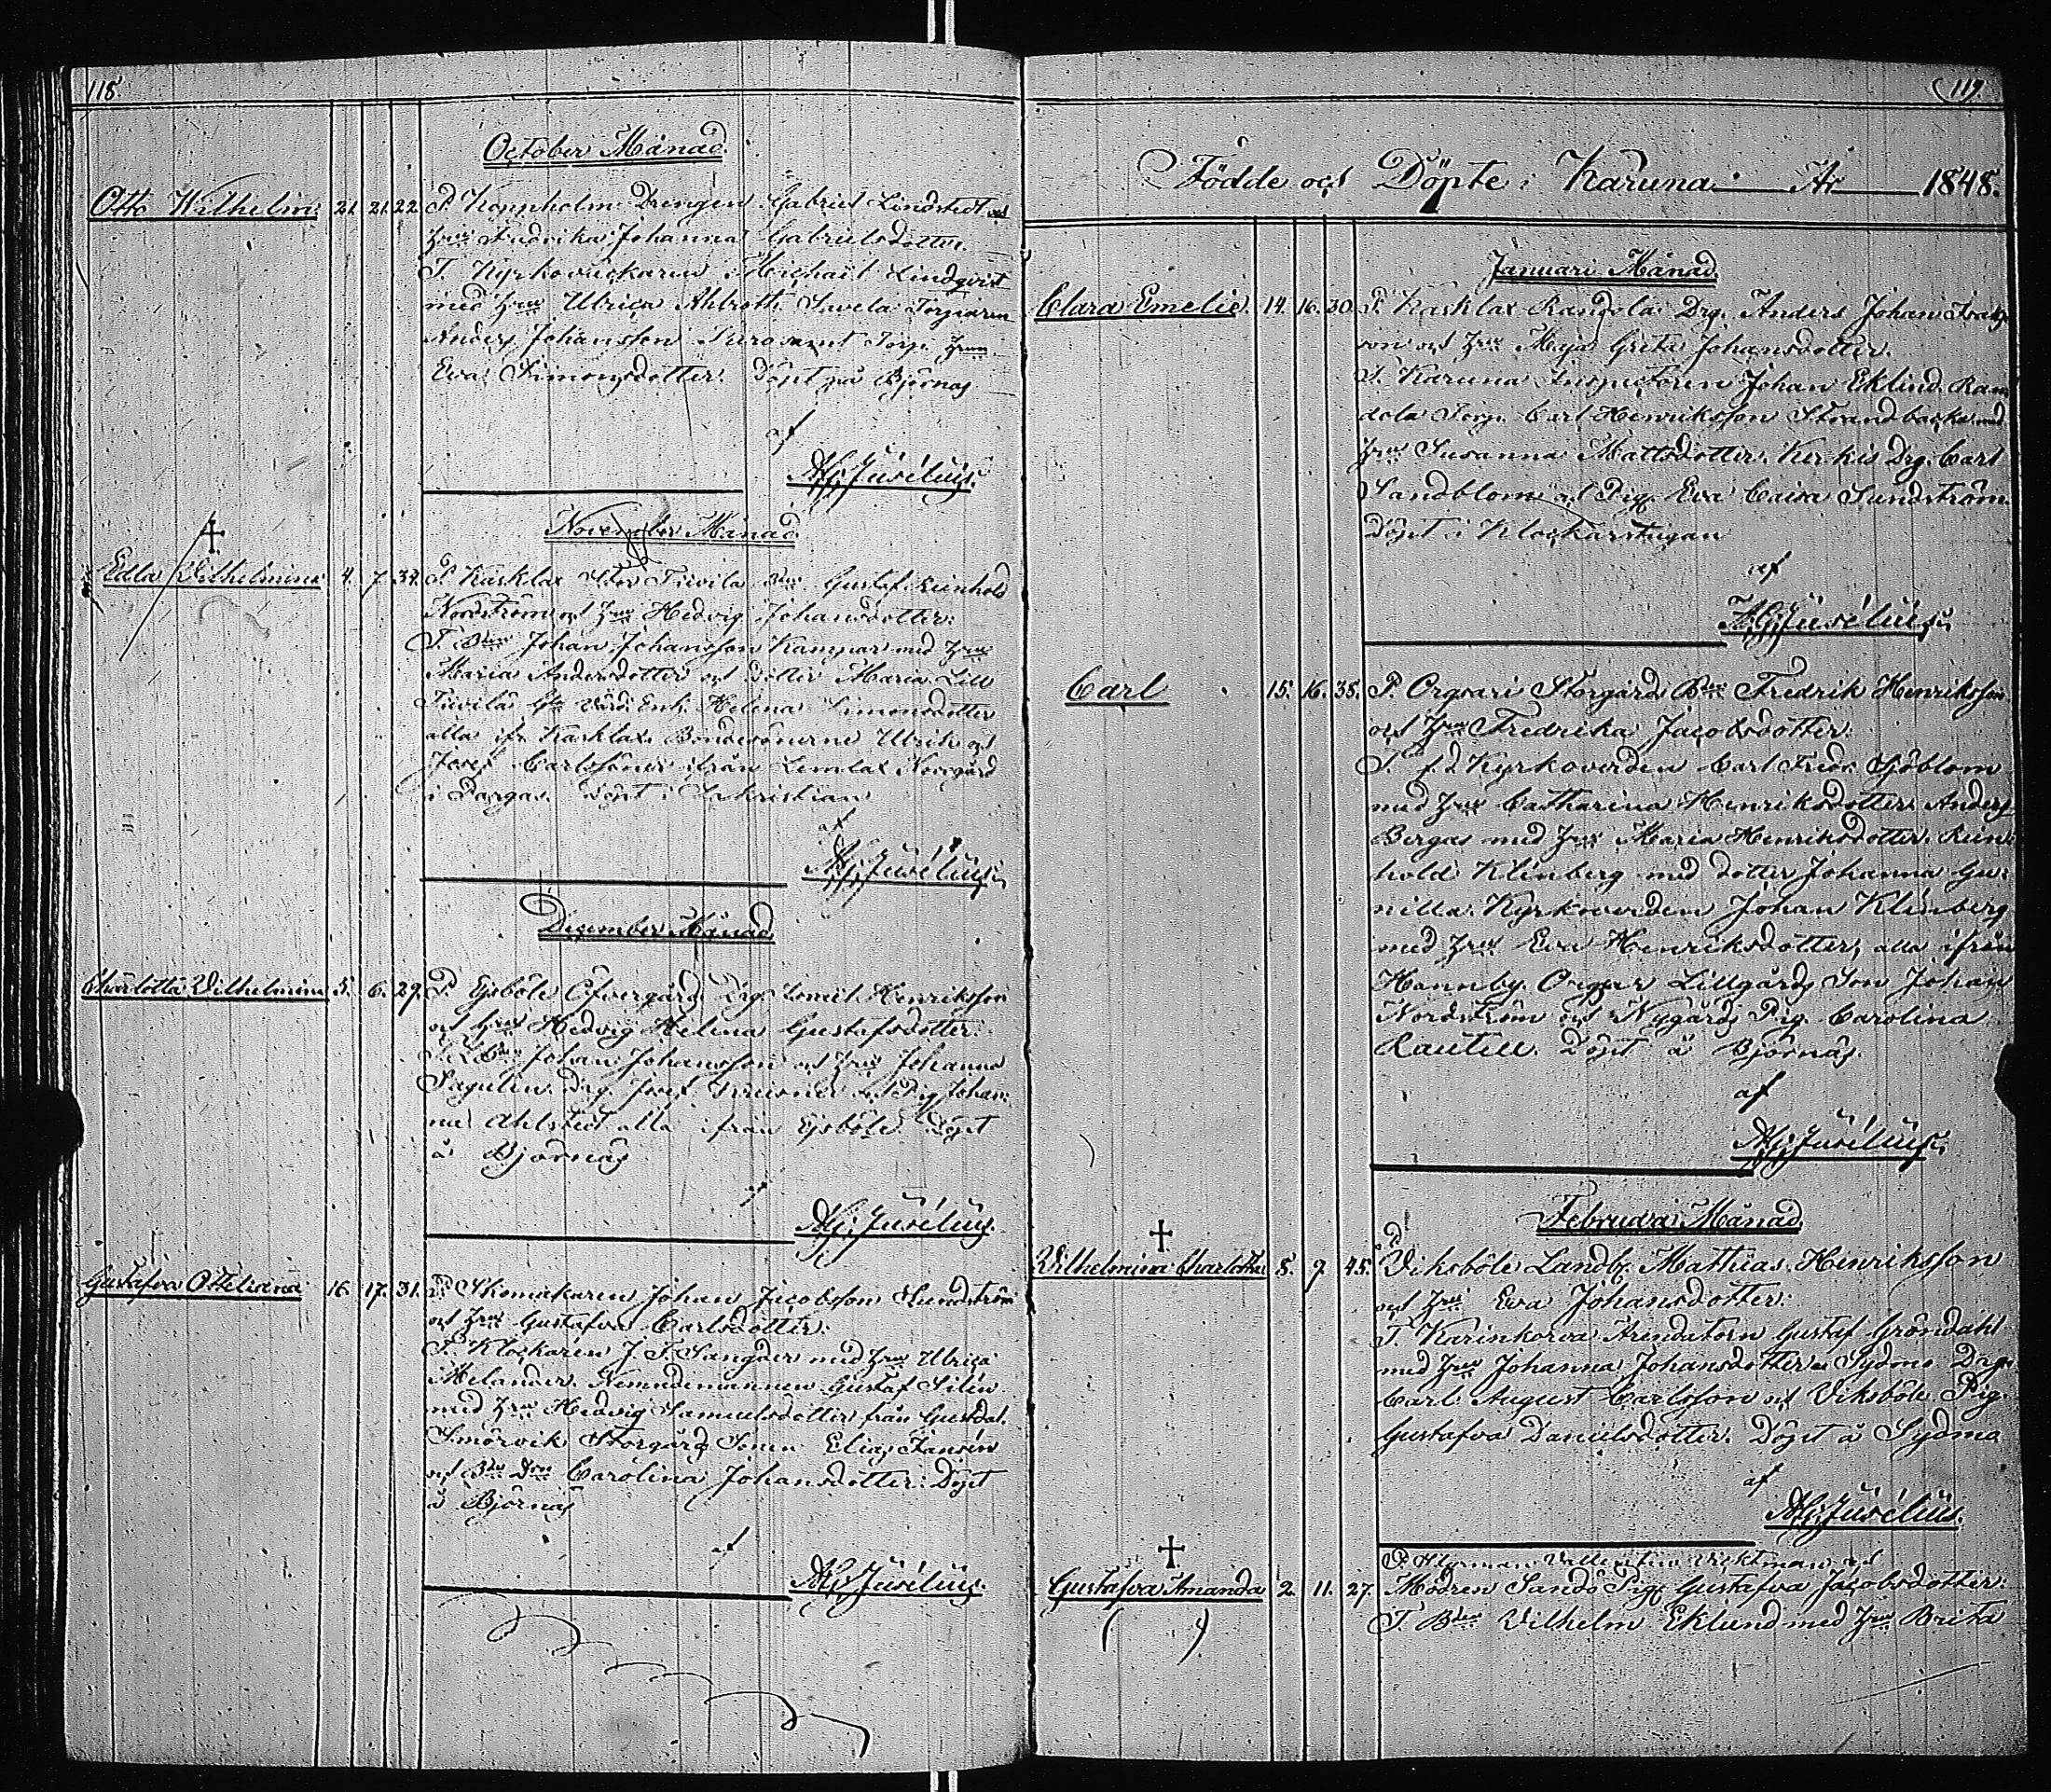 118
October Månad
Otto Wilhelm. 21. 21. 22. P. Koppholm Drengen Gabriel Lindstedt och
hru Fredrika Johanna Gabrielsdotter.
T. Kyrkoväcktaren Michaël Lindqvist
med hru Ulrica Ahlroth. Savela Torparen
Anders Johansson Torp. hrun
Eva Simonsdotter. Döpt på Björnäs
af
Juselius.
November Månad
Edla Wilhelmina 4. 7. 34. P. Karklax Stor Tiivila Gustaf Reinhold
Nordström och hru Hedvig Johansdotter.
T. Bdn Johan Johansson Kampar med hru
Maria Andersdotter och dotter Maria. Lill
Tiivila Enk. Helena Simonsdotter
alla ifr. Karklax. Bondesönerne Ulrik och
Josef Carlssöner ifrån Lemlax Norrgård
i Pargas. Döpt i Sakristian
af
Juselius.
December Månad
Charlotta Wilhelmina 5. 6. 29. P. Ejsböle Öfvergård Drg. Henriksson
och hru Hedvig Helena Gustafsdotter.
T. Johan Johansson och hru Johanna
Sagulin. Drg. Josef och Pig Johan
na Ahlstedt alla ifrån Ejsböle. Döpt
å Björnäs
af
Juselius.
Gustafva Ottiliana 16. 17. 31. P. Skomakaren Johan Jacobsson Sundström
och hru Gustafva Carlsdotter.
T. Klockaren J. F. Sangder med hru Ulrica
Melander. Nemndemannen Gustaf Silén
med hru Hedvig Samuelsdotter från Gustdal.
Smörvik Storgårds Sonen Elias Jansén
och Bde Carolina Johansdotter. Döpt
å Björnäs
af
Juselius.
119.
Födde och Döpte i Karuna År 1848.
Januari Månad
Clara Emelie. 14. 16. 30. P. Karklax Randola Drg. Anders Johan
son och hru Maja Greta Johansdotter.
T. Karuna Inspectoren Johan Eklund. Ran
dola Torp. Carl Henriksson Strandbacka med
hru Susanna Mattsdotter. Kerkis Drg. Carl
Sandblom och Pig. Eva Caisa Sundström.
Döpt i Klockarstugan
af
Juselius.
Carl 15. 16. 35. P. Orgsari Storgård Bdn Fredrik Henriksson
och hru Fredrika Jacobsdotter.
T. f.d. Kyrkoverden Carl Fredr. Sjöblom
med hru Catharina Henriksdotter. Anders
Bergas med hru Maria Henriksdotter. Rein
hold Klinberg med dotter Johanna Gu
nilla. Kyrkoverden Johan Klinberg
med hru Eva Henriksdotter, alla ifrån
Hannby. Lillgårds Son Johan
Nordström och Nygårds Pig. Carolina
Rautell. Döpt å Björnäs.
af
Juselius.
Februari Månad
Vilhelmina Charlotta 8. 9. 45. P. Viksböle Landb. Mathias Henriksson
och hru Eva Johansdotter.
T. Karinkorva Arendatorn Gustaf Gröndahl
med hru Johanna Johansdotter. Sydmo Drg.
Carl August Carlsson och Viksböle Pig.
Gustafva Danielsdotter. Döpt å Sydmo
af
Juselius.
Gustafva Amanda 2. 11. 27. P. Vallentin och
Modren Sandö Pig. Gustafva Jacobsdotter.
T. Bdn Vilhelm Eklund med hru Brita